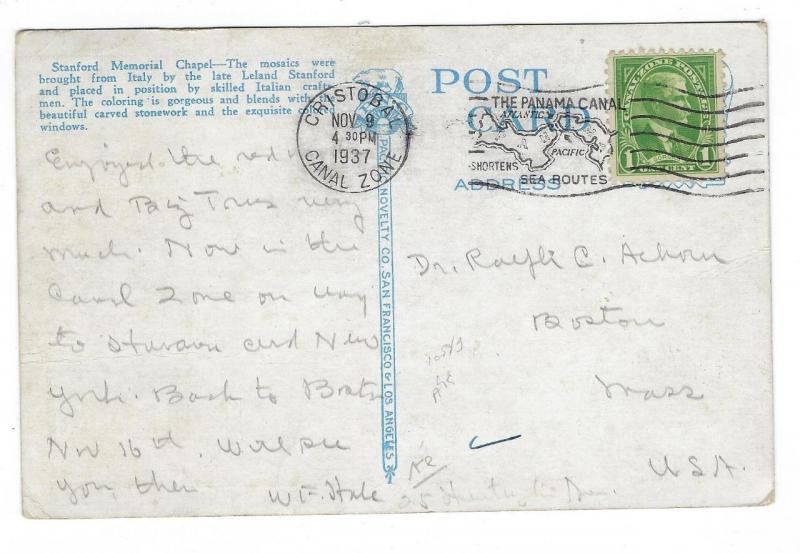 Stanford Memorial Chapel—The mosaics were
brought from Italy by the late Leland Stanford
and placed in position by skilled Italian crafts-
men. The coloring is gorgeous and blends with
beautiful carved stonework and the exquisite
windows.
POST
CARD
ADDRESS
CRISTOBAL
NOV 9
4 30 PM
1937
CANAL ZONE
THE PANAMA CANAL
ATLANTIC
PACIFIC
SHORTENS
SEA ROUTES
CANAL ZONE POSTAGE
1 1
ONE CENT
NOVELTY CO. SAN FRANCISCO & LOS ANGELES
Enjoyed the red
and Big Trees very
much. Now in the
Canal Zone on way
to Havana and New
York. Back to Boston
Nov 16th. Will see
you, then
W F Hale
Dr. Ralph C. Achorn
Boston
Mass
USA.
25 Huntington Ave.